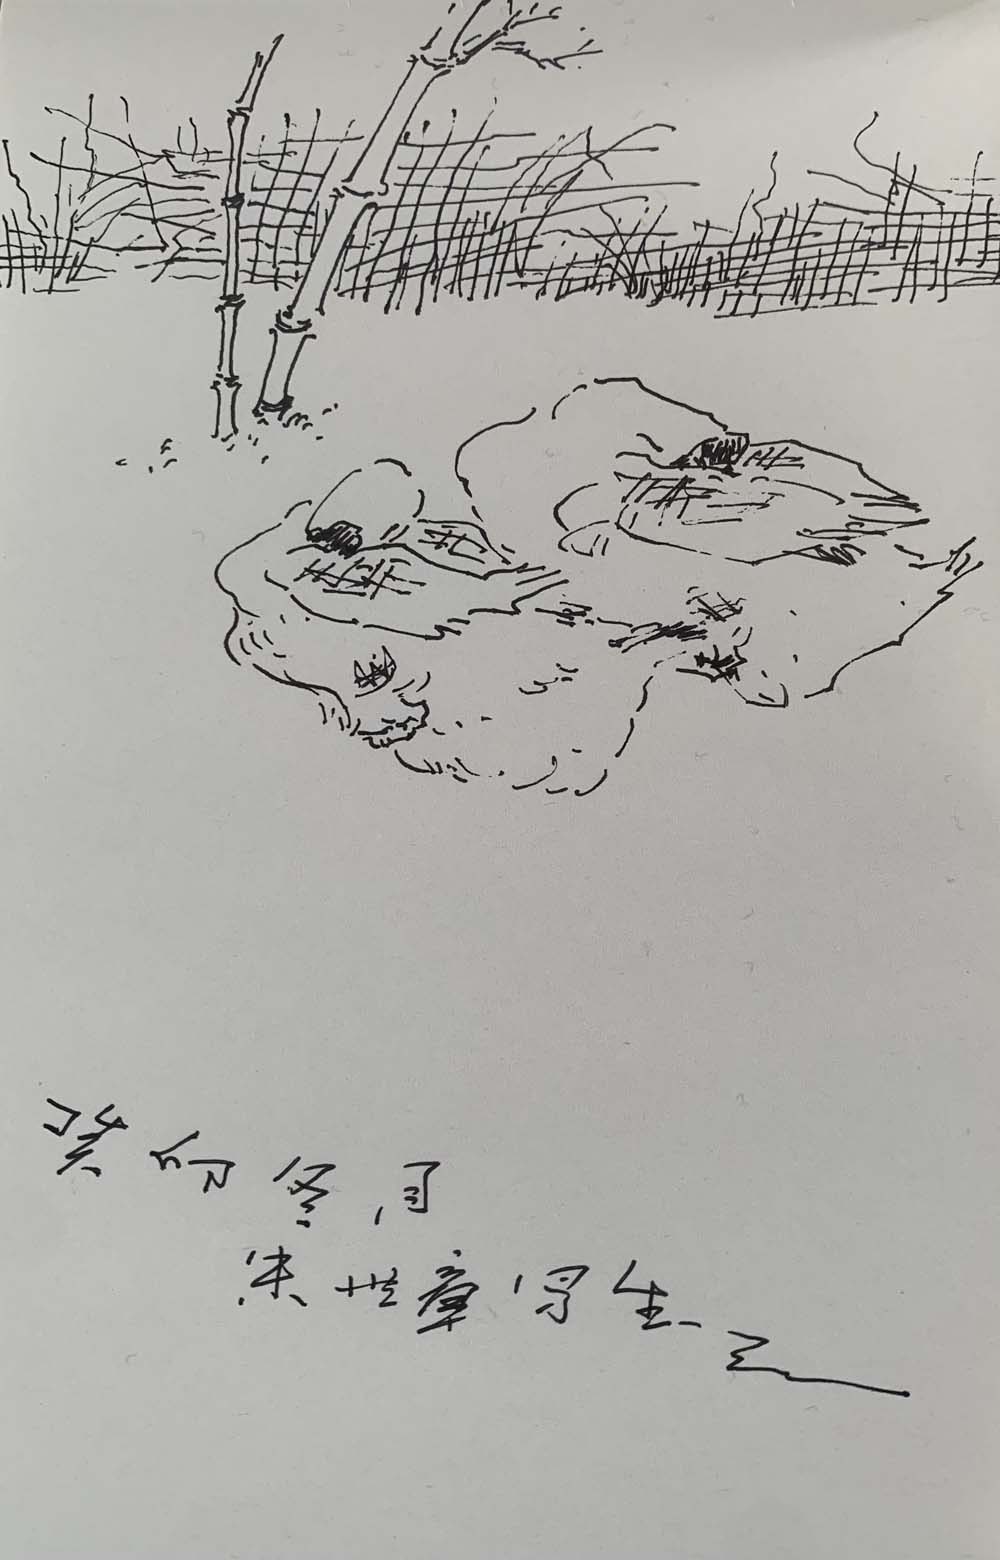 癸卯冬月
朱世章写生